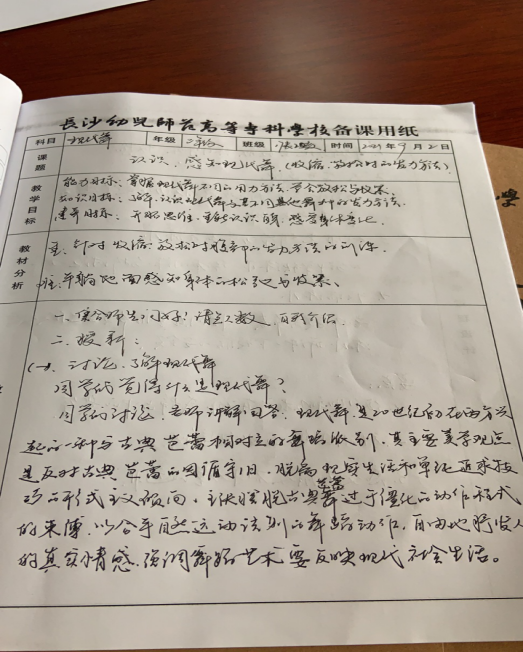 長沙幼兒師范高等专科学校备课用纸
科目 现代舞 年级 二年级 班级 时间 2021年9月2日
课题 认识、感知现代舞(收缩、放松时的发力方法)
教学目标 能力目标:掌握现代舞不同的用力方法,学会放松与收缩。
知识目标:了解、认识现代舞与其他舞种的发力方法。
素养目标:开拓思维,重新认识自身、感受身体变化。
教材分析 重:针对收缩、放松时腹部的发力方法的训练。
难:平躺地面感知身体的松弛与收紧、
一、集合师生问好!清点人数,自我介绍
二、授新:
(一)讨论、了解现代舞
同学们觉得什么是现代舞?
同学们讨论,老师讲解回答,现代舞是20世纪初在西方兴
起的一种与古典芭蕾相对立的舞蹈派别,其主要美学观点
是反对古典芭蕾的因循守旧、脱离现实生活和单纯追求技
巧的形式主义倾向,主张摆脱古典芭蕾舞过于僵化的动作程式
的束缚,以合乎自然运动法则的舞蹈动作,自由地抒发人
的真实情感,强调舞蹈艺术要反映现代社会生活。